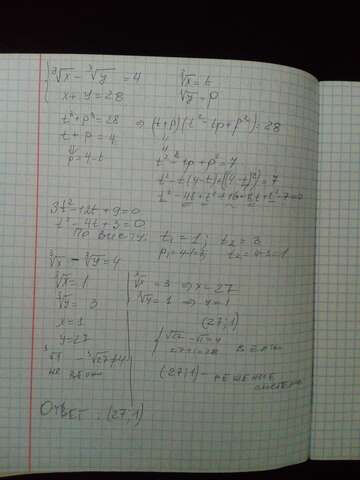 { ³√x − ³√y = 4
x + y = 28
³√x = t
³√y = p
t³ + p³ = 28 ⇒ (t+p)(t² − tp + p²) = 28
t + p = 4
p = 4−t
t² − tp + p² = 7
t² − t(4−t) + (4−t)² = 7
t² − 4t + t² + 16 − 8t + t² − 7 = 0
3t² − 12t + 9 = 0
t² − 4t + 3 = 0
по Виету: t₁ = 1; t₂ = 3
p₁ = 4−1=3, t₂ = 4−3=1
³√x − ³√y = 4
³√x = 1
³√y = 3
x = 1
y = 27
³√1 − ³√27 ≠ 4
не
³√x = 3 ⇒ x = 27
³√y = 1 ⇒ y = 1
(27; 1)
27+1=28
(27; 1) − решение системы
Ответ: (27; 1)